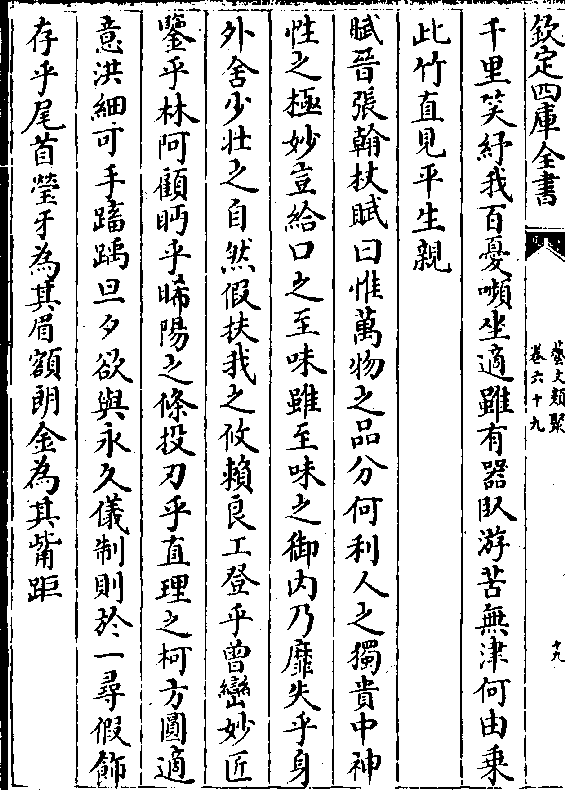 欽定四庫全書
藝文類聚
卷六十九
十九
千里笑紓我百憂嚬坐適雖有器臥游苦無津何由乗
此竹直見平生親
賦晉張翰杖賦曰惟萬物之品分何利人之獨貴中神
性之極妙豈給口之至味雖至味之御内乃靡失乎身
外舍少壯之自然假扶我之攸賴良工登乎曾巒妙匠
鑒乎林阿顧眄乎晞陽之條投刃乎直理之柯方圓適
意洪細可手躊躕旦夕欲與永久儀制則於一尋假飾
存乎尾首瑩牙為其眉額朗金為其觜距